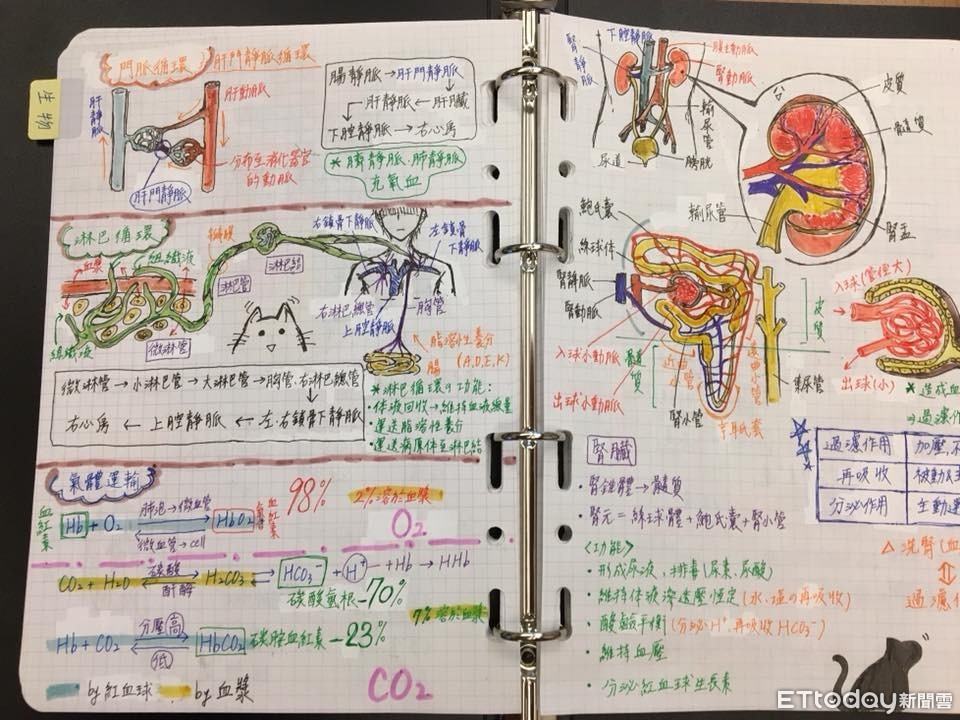 生物
門脈循環
肝門靜脈循環
肝靜脈
肝動脈
分布至消化器官
的動脈
肝門靜脈
腸靜脈→肝門靜脈
肝靜脈←肝臟
下腔靜脈→右心房
*臍靜脈、肺靜脈
充氧血
淋巴循環
血漿
組織液
瓣膜
淋巴結
淋巴管
微淋管
組織液
右鎖骨下靜脈
左鎖骨
下靜脈
右淋巴總管
胸管
上腔靜脈
脂溶性養分
(A,D,E,K)
腸
微淋管→小淋巴管→大淋巴管→胸管、右淋巴總管
右心房←上腔靜脈←左、右鎖骨下靜脈
*淋巴循環の功能:
・体液回收→維持血液總量
・運送脂溶性養分
・運送病原体至淋巴結
氣體運輸
血紅素
Hb+O₂
肺泡→微血管
微血管→cell
HbO₂
98%
2%溶於血漿
O₂
CO₂+H₂O
碳酸
酐酶
H₂CO₃
HCO₃⁻
H⁺
+Hb→HHb
碳酸氫根-70%
7%溶於血漿
Hb+CO₂
分壓高
低
HbCO₂
碳醯血紅素-23%
by紅血球
by血漿
CO₂
腎靜脈
下腔靜脈
腹主動脈
腎動脈
輸尿管
尿道
膀胱
皮質
髓質
輸尿管
腎盂
鮑氏囊
絲球体
腎靜脈
腎動脈
入球小動脈
出球小動脈
髓質
近曲小管
遠曲小管
腎小管
亨耳氏囊
集尿管
皮質
入球(管徑大)
出球(小)
*造成血
⇒過濾作
過濾作用
加壓,不
再吸收
被動&主
分泌作用
主動運
腎臟
・腎錐體→髓質
・腎元=絲球體+鮑氏囊+腎小管
<功能>
・形成尿液、排毒(尿素、尿酸)
・維持体液滲透壓恒定(水、鹽の再吸收)
・酸鹼平衡(分泌H⁺,再吸收HCO₃⁻)
・維持血壓
・分泌紅血球生長素
△洗腎(血
過濾作
ETtoday新聞雲